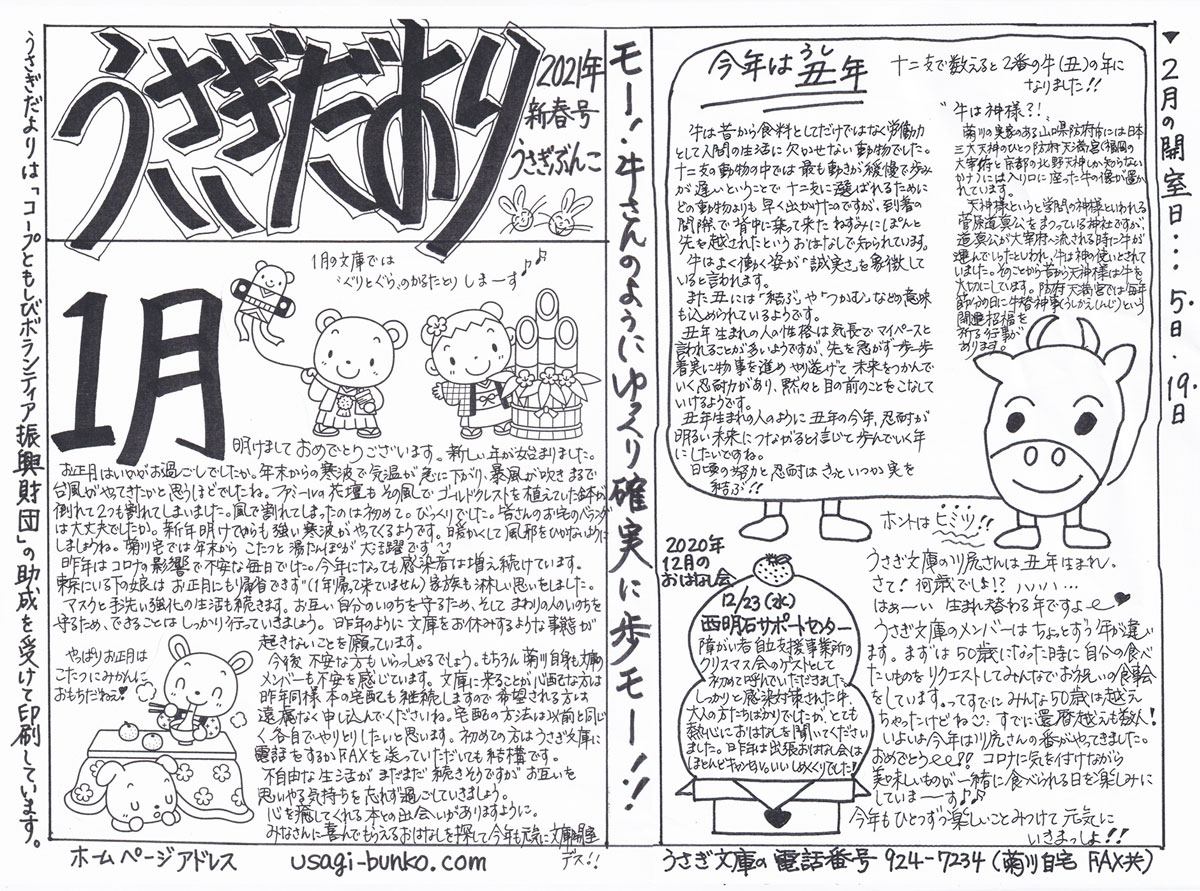 うさぎだより
2021年
新春号
うさぎぶんこ
うさぎだよりは「コープともしびボランティア振興財団」の助成を受けて印刷しています。
1月
1月の文庫では
〝ぐりとぐら〟のかるたとり しまーす♪♪
明けまして おめでとうございます。新しい年が始まりました。
お正月はいかがお過ごしでしたか。年末からの寒波で気温が急に下がり、暴風が吹きまるで
台風がやってきたかと思うほどでしたね。ファミールの花壇もその風でゴールドクレストを植えていた鉢が
倒れて2つも割れてしまいました。風で割れてしまったのは初めて。びっくりでした。皆さんのお宅のベランダ
は大丈夫でしたか。新年明けてからも強い寒波がやってくるようです。暖かくして風邪をひかないように
しましょうね。菊川宅では年末から こたつと湯たんぽが大活躍です
昨年はコロナの影響で不安な毎日でした。今年になっても感染者は増え続けています。
東京にいる下の娘は お正月にも帰省できず(1年帰って来ていません)家族も淋しい思いをしました。
マスクと手洗い強化の生活も続きます。お互い自分のいのちを守るため、そして まわりの人のいのちを
守るため、できることは しっかり行っていきましょう。昨年のように文庫をお休みするような事態が
起きないことを願っています。
今後 不安な方も いらっしゃるでしょう。もちろん 菊川自身も文庫の
メンバーも不安を感じています。文庫に来ることが心配な方は
昨年同様 本の宅配も継続しますので希望される方は
遠慮なく申し込んでくださいね。宅配の方法は以前と同じ
く各自でやりとりしたいと思います。初めての方はうさぎ文庫に
電話をするかFAXを送っていただいても結構です。
不自由な生活が まだまだ 続きそうですが お互いを
思いやる気持ちを忘れず過ごしていきましょう。
心を癒してくれる本との出会いがありますように。
みなさんに喜んでもらえるおはなしを探して今年も元気に文庫開室
デス!!
やっぱりお正月は
こたつにみかんに
おもちだねぇ
ホームページアドレス usagi-bunko.com
モー!牛さんのようにゆっくり確実に歩モー!!
今年は丑年
うし
十二支で数えると2番の牛(丑)の年に
なりました!!
牛は昔から食料としてだけではなく労働力
として人間の生活に欠かせない動物でした。
十二支の動物の中では最も動きが緩慢で歩み
が遅いということで十二支に選ばれるために
どの動物よりも早く出かけたのですが、到着の
間際で背中に乗って来たねずみにぽんと
先を越されたというおはなしで知られています。
牛はよく働く姿が「誠実さ」を象徴して
いると言われます。
また丑には〝結ぶ〟や〝つかむ〟などの意味
も込められているようです。
丑年生まれの人の性格は気長でマイペースと
言われることが多いようですが、先を急がず一歩一歩
着実に物事を進めやり遂げて 未来をつかんで
いく忍耐力があり、黙々と目の前のことをこなして
いけるようです。
丑年生まれの人のように 丑年の今年、忍耐が
明るい未来につながると信じて歩んでいく年
にしたいですね。
日頃の努力と忍耐はきっといつか実を
結ぶ!!
〝牛は神様?!〟
菊川の実家のある山口県防府市には日本
三大天神のひとつ防府天満宮(福岡の
大宰府と京都の北野天神しか知らない
カナ)には入り口に座った牛の像が置か
れています。
天神様というと学問の神様といわれる
菅原道真公をまつっている神社ですが、
道真公が大宰府へ流される時に牛が
運んでいったといわれ、牛は神の使いとされ
ていました。そのことから昔から天神様は牛を
大切にしています。防府天満宮では毎年
節分の日に牛替神事(うしかえしんじ)という
開運招福を
祈る行事が
あります。
▼2月の開室日…5日・19日
2020年
12月の
おはなし会
12/23(水)
西明石サポートセンター
障がい者自立支援事業所の
クリスマス会のゲストとして
初めて呼んでいただきました。
しっかりと感染対策された中、
大人の方たちばかりでしたが、とても
熱心におはなしを聞いてください
ました。昨年は出張おはなし会は
ほとんど行かない。いいしめくくりでした!
ホントは ヒミツ!!
うさぎ文庫の川尻さんは 丑年生まれ。
さて!何歳でしょ!? ハハハ…
はぁーい 生まれ替わる年ですよ
うさぎ文庫のメンバーは ちょっとずつ年が違い
ます。まずは50歳になった時に自分の食べ
たいものをリクエストしてみんなでお祝いの食事会
をしています。ってすでにみんな50歳は越え
ちゃったけどね すでに還暦越えも数人!
いよいよ今年は川尻さんの番がやってきました。
おめでとう!! コロナに気を付けながら
美味しいものが一緒に食べられる日を楽しみに
していまーす♪♪
今年もひとつずつ楽しいことみつけて元気に
いきまっしょ!!
うさぎ文庫の電話番号 924-7234(菊川自宅 FAX共)